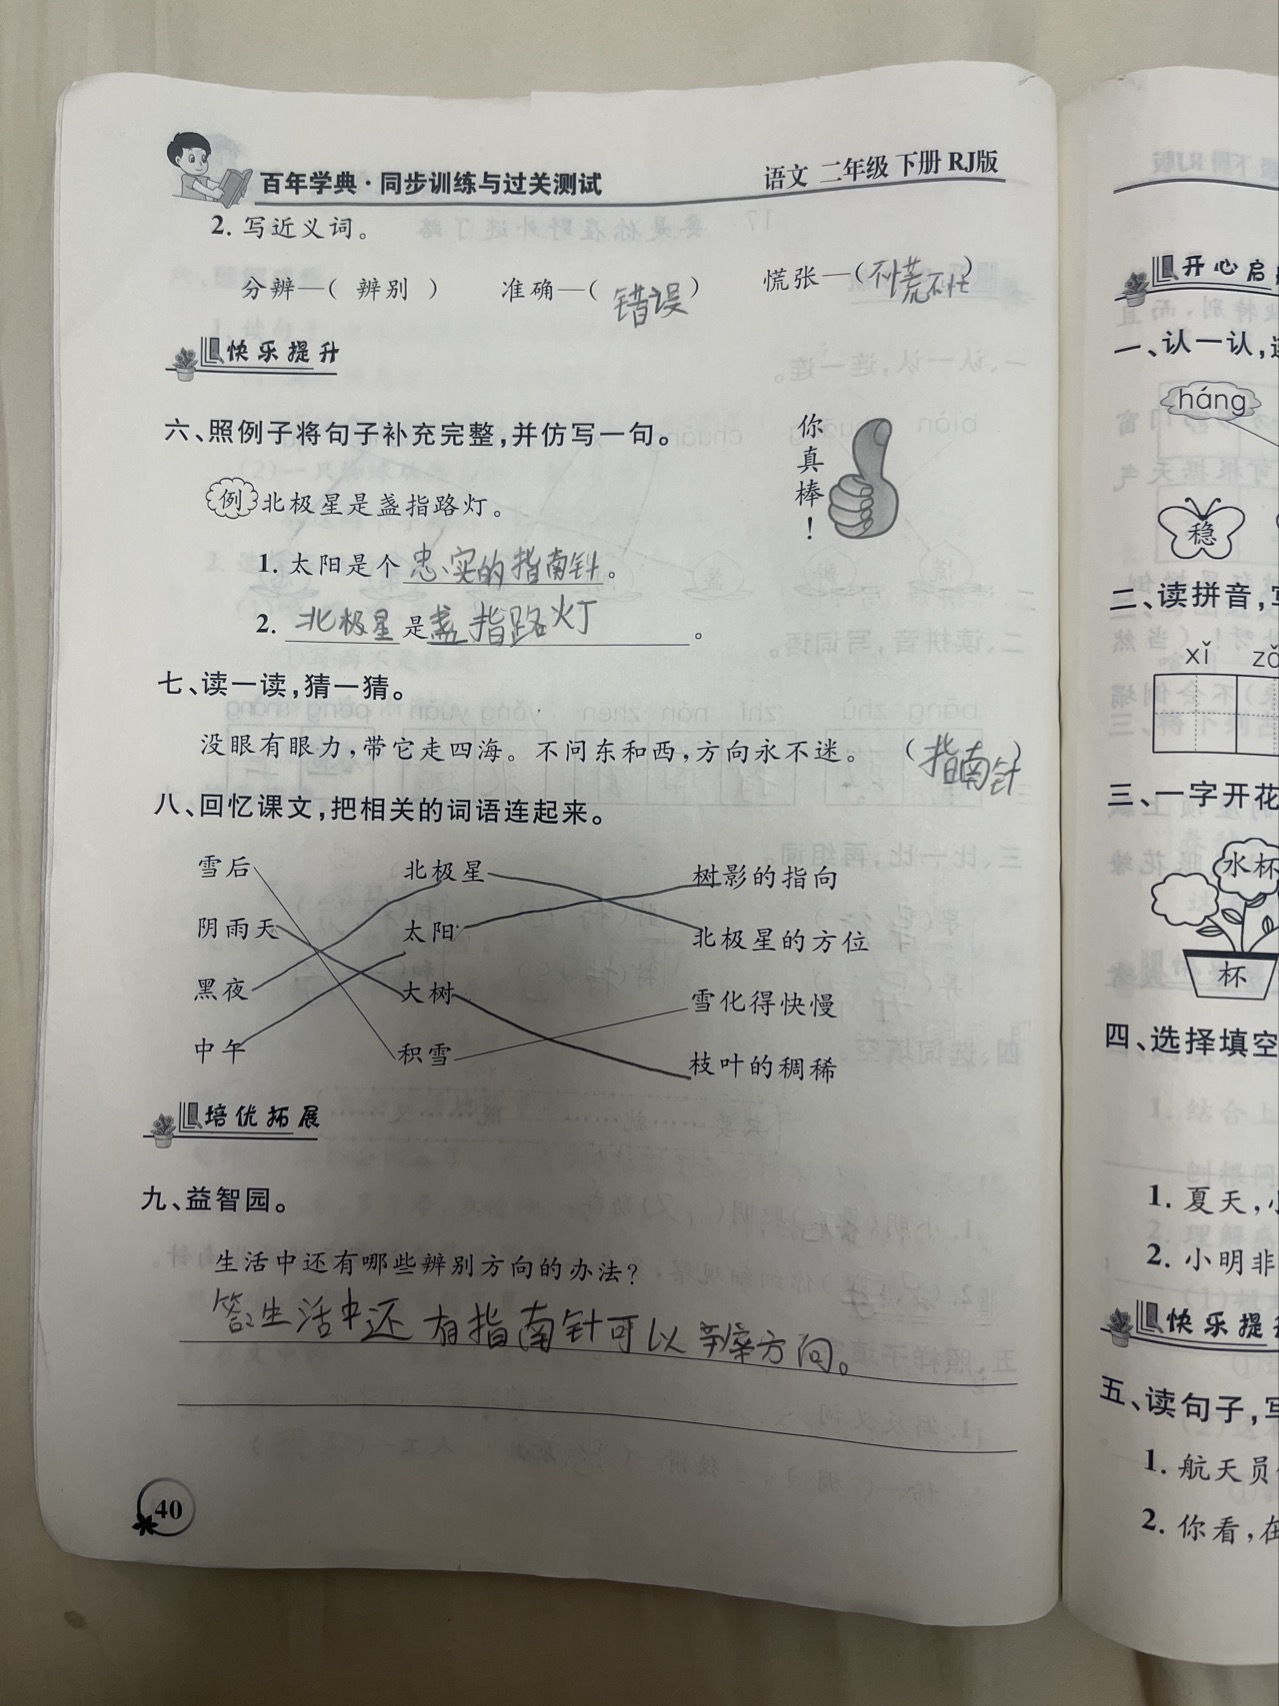 百年学典·同步训练与过关测试
语文 二年级 下册 RJ版
2. 写近义词。
分辨—( 辨别 ) 准确—( 错误 ) 慌张—(不慌不忙)
快乐提升
六、照例子将句子补充完整,并仿写一句。
例 北极星是盏指路灯。
你真棒!
1. 太阳是个忠实的指南针。
2. 北极星是盏指路灯。
七、读一读,猜一猜。
没眼有眼力,带它走四海。不问东和西,方向永不迷。 (指南针)
八、回忆课文,把相关的词语连起来。
雪后 北极星 树影的指向
阴雨天 太阳 北极星的方位
黑夜 大树 雪化得快慢
中午 积雪 枝叶的稠稀
培优拓展
九、益智园。
生活中还有哪些辨别方向的办法?
答:生活中还有指南针可以辨方向。
40
开心启
一、认一认,
háng
稳
二、读拼音,
xǐ
三、一字开花
水杯
杯
四、选择填空
1. 夏天,
2. 小明非
快乐提
五、读句子,
1. 航天员
2. 你看,在